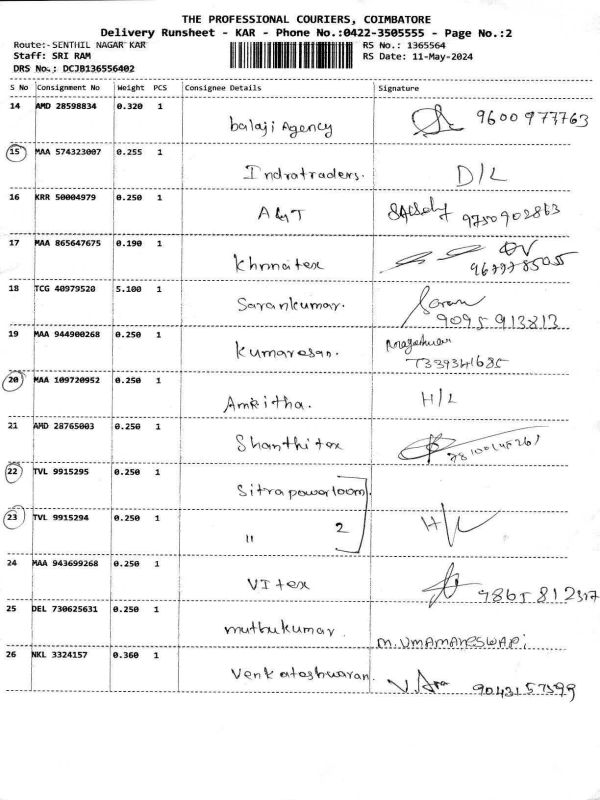 THE PROFESSIONAL COURIERS, COIMBATORE
Delivery Runsheet - KAR - Phone No.:0422-3505555 - Page No.:2
Route:-SENTHIL NAGAR KAR RS No.: 1365564
Staff: SRI RAM RS Date: 11-May-2024
DRS No.: DCJB136556402
S No Consignment No Weight PCS Consignee Details Signature
14 AMD 28598834 0.320 1
balaji Agency 9600977763
15 MAA 574323007 0.255 1
Indratraders. D/L
16 KRR 50004979 0.250 1
A&T 9750902863
17 MAA 865647675 0.190 1
Khrnatex
18 TCG 40979520 5.100 1
Sarankumar. Saran
9095913813
19 MAA 944900268 0.250 1
Kumaresan. 7339341685
20 MAA 109720952 0.250 1
Amritha. H/L
21 AMD 28765003 0.250 1
Shanthi tex
22 TVL 9915295 0.250 1
Sitrapowerloom
23 TVL 9915294 0.250 1
" 2 H/L
24 MAA 943699268 0.250 1
VI tex
25 DEL 730625631 0.250 1
muthukumar. M. UMAMAHESWARI
26 NKL 3324157 0.360 1
Venkateshwaran